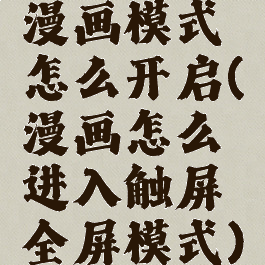 漫画模式
怎么开启(
漫画怎么
进入触屏
全屏模式)